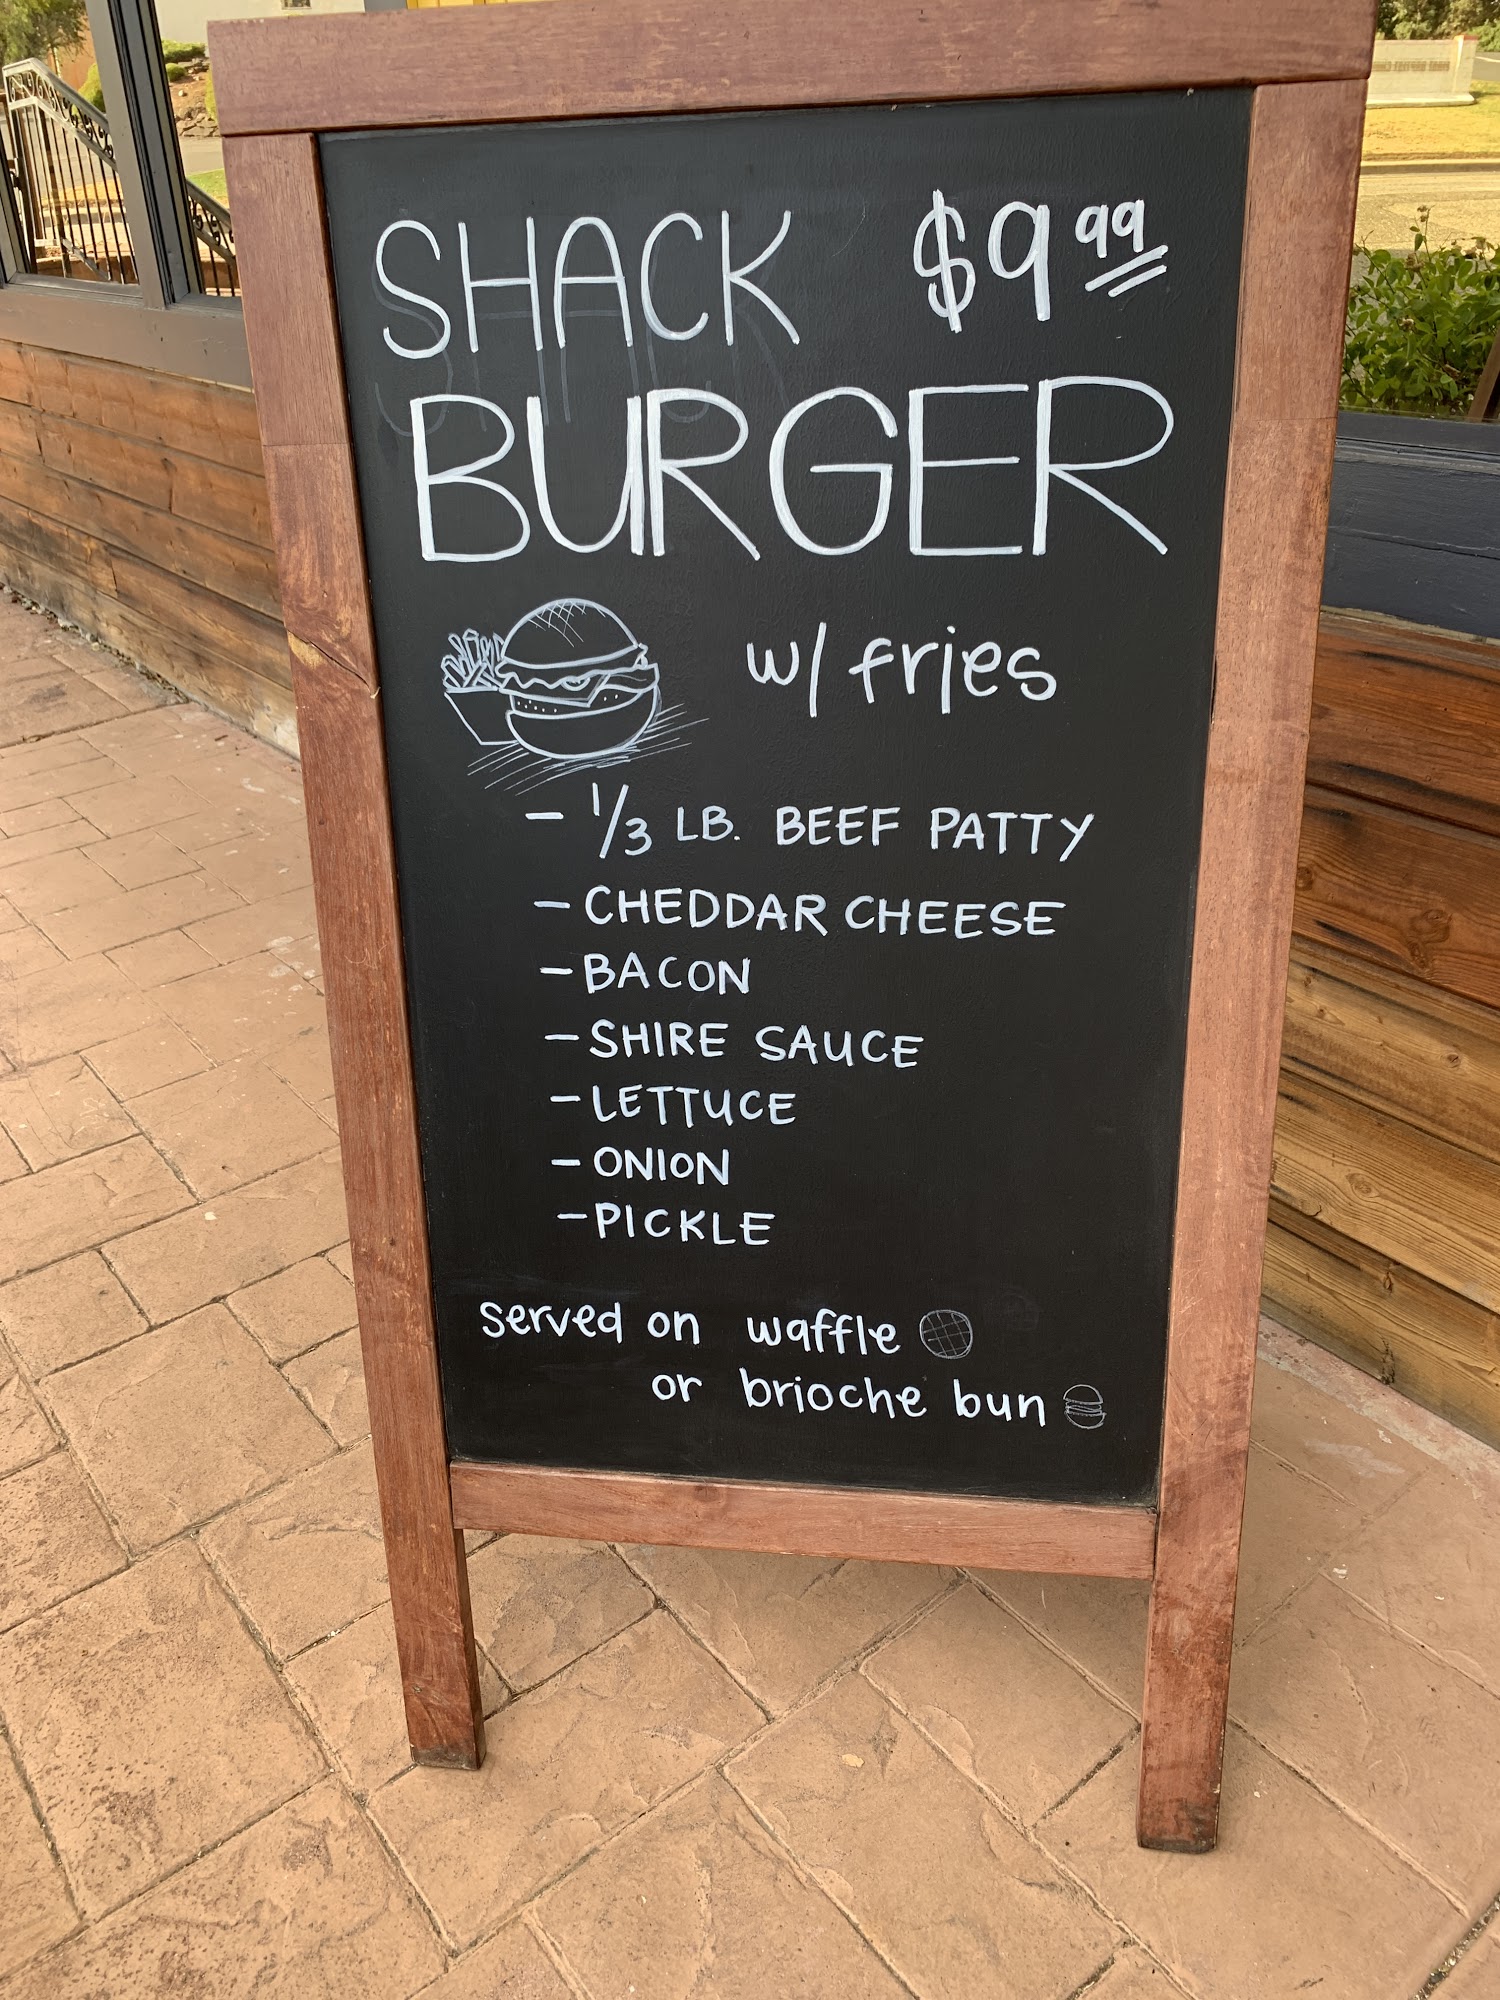 SHACK $9 99
BURGER
w/ fries
- 1/3 LB. BEEF PATTY
- CHEDDAR CHEESE
- BACON
- SHIRE SAUCE
- LETTUCE
- ONION
- PICKLE
served on waffle
or brioche bun